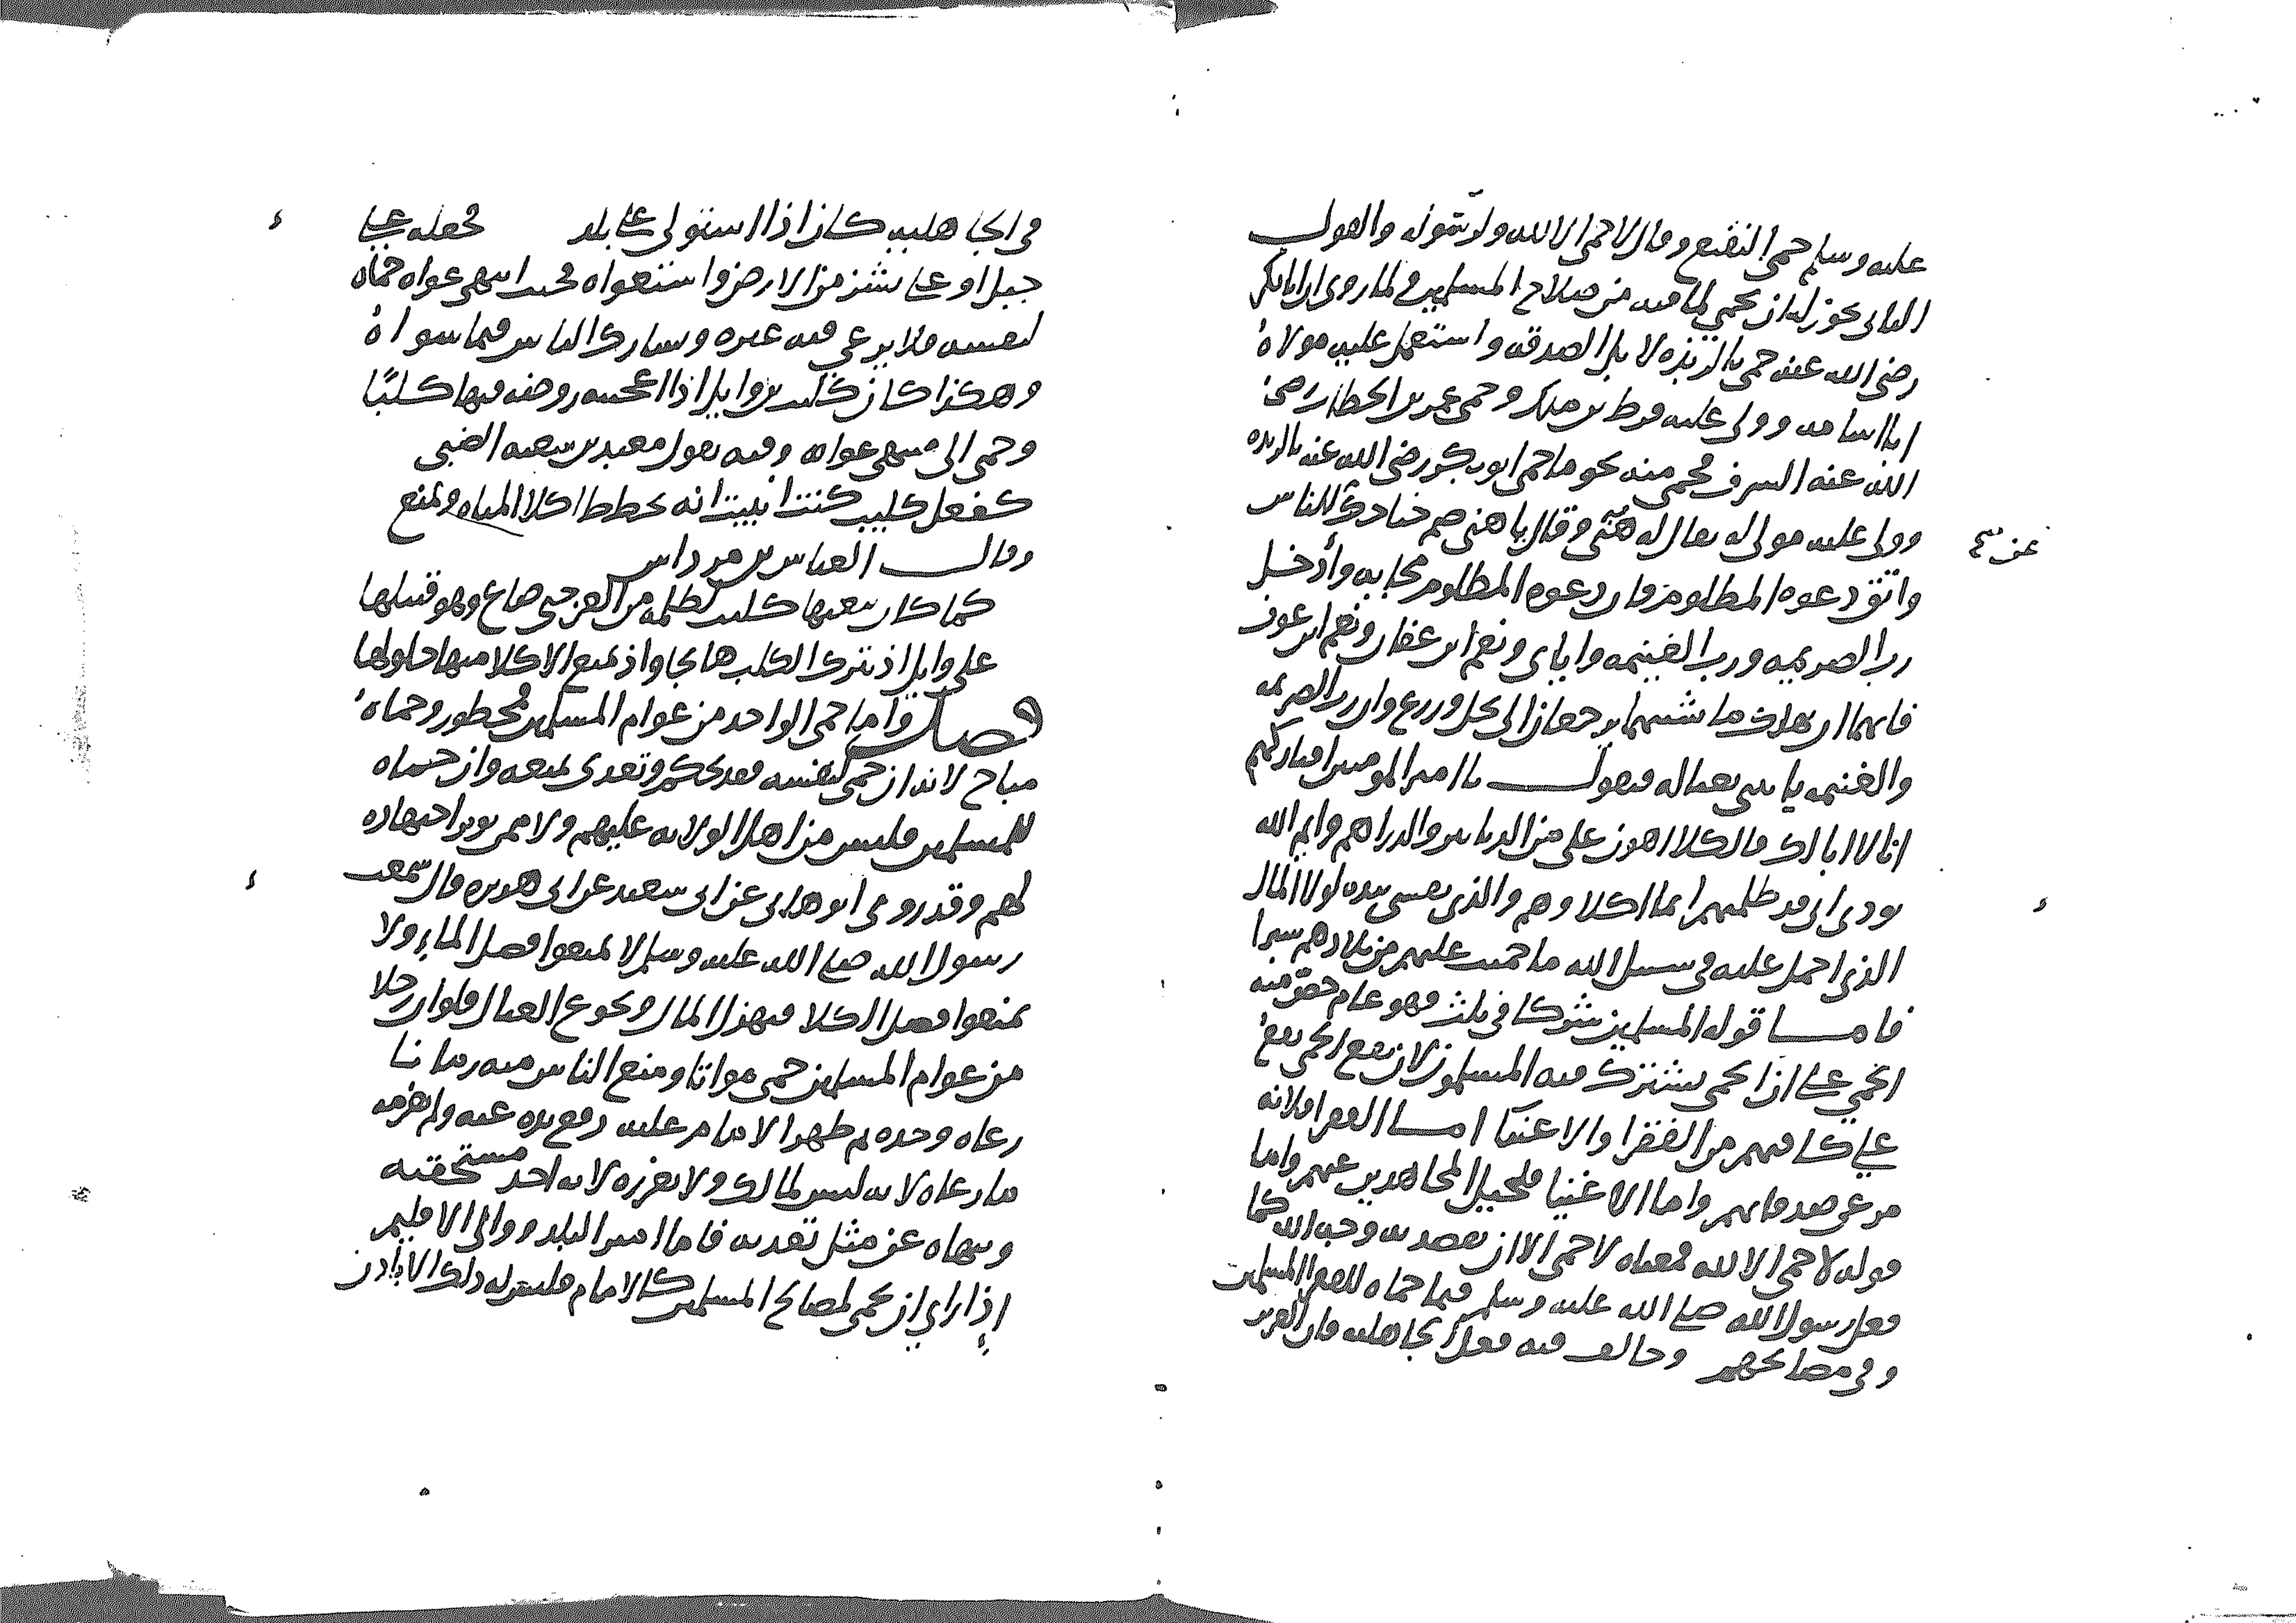 عليه وسلم حمى النقيع وقال لا حمى الا لله ولرسوله والقول
الثاني يجوز له ان يحمي لما فيه من صلاح المسلمين لما روى ان ابا بكر
رضي الله عنه حمى بالربذه لابل الصدقه واستعمل عليه مولاه
ابا اسامه وولى عليه قرط بن مالك وحمى عمر بن الخطاب رضي
الله عنه السرف فحمى منه نحو ما حمى ابوبكر رضي الله عنه بالربده
وولى عليه مولى له يقال له هني وقال يا هني ضم جناحك للناس
عن
واتق دعوه المظلوم فان دعوه المظلوم مجابه وأدخل
رب الصريمه ورب الغنيمه واياى ونعم ابن عفان ونعم ابن عوف
فانهما ان يهلك ماشيتهما يرجعان الى نخل وزرع وان رب الصريمه
والغنيمه ياتيني بعياله فيقول يا امير المومنين افتاركهم
انا لا ابا لك فالكلا اهون على من الدنانير والدراهم وايم الله
يودى انى قد ظلمتهم انما الكلا وهم والذى نفسى بيده لولا المال
الذى احمل عليه في سبيل الله ما حميت عليهم من بلادهم شبرا
فاما قوله المسلمين شركا في ثلث فهو عام خص منه
الحمي على ان الحمى يشترك فيه المسلمون لان نفع الحمى يقع
على كافتهم من الفقرا والاغنيا اما الفقرا فلانه
مرعى صدقاتهم واما الاغنيا فلخيل المجاهدين عنهم واما
قوله لا حمى الا لله فمعناه لا حمى الا ان يقصد به وجه الله كما
فعل رسول الله صلى الله عليه وسلم فيما حماه للفقرا المسلمين
وفي مصالحهم وخالف فيه فعل الجاهليه فان العزيز
في الجاهليه كان اذا استولى على بلد فجعله على
جبل او على نشز من الارض واستعواه فحيث انتهى عواه حماه
لنفسه فلا يرعى فيه غيره وشارك الناس فيما سواهُ
وهكذا كان كليب بن وايل اذا اعجبته روضه فيها كلبًا
وحمى الى منتهى عواه وفيه يقول معبد بن شعبه الضبى
كفعل كليب كنت انبيت انه يخطط اكلا المياه ويمنع
وقال العباس بن مرداس
كما كان يبغيها كليب لظلمه من العز حتى ضاع وهو قتيلها
على وايل اذ يترك الكلب هايجا واذ يمنع الاكلا منها حلولها
فصل واما حمى الواحد من عوام المسلمين فمحظور وحماهُ
مباح لانه ان حمى لنفسه فقد تحكم وتعدى بمنعه وان حماه
للمسلمين فليس من اهل الولايه عليهم ولا ممن يوثر اجتهاده
لهم وقد روى ابو هلال عن ابى سعيد عن ابى هريره قال سمعت
رسول الله صلى الله عليه وسلم لا تمنعوا فضل الماء ولا
تمنعوا فضل الكلا فيهزل المال ويجوع العيال فلو ان رجلا
من عوام المسلمين حمى مواتا ومنع الناس منه زمانا
رعاه وحده ثم ظهر الامام عليه رفع يده عنه ولم يغرمه
ما رعاه لانه ليس لمالك ولا يعزره لانه احد مستحقيه
ونهاه عن مثل تعديه فاما امير البلد ووالى الاقليم
إذا راى ان يحمى لمصالح المسلمين كالامام فليس له ذلك الا باذن